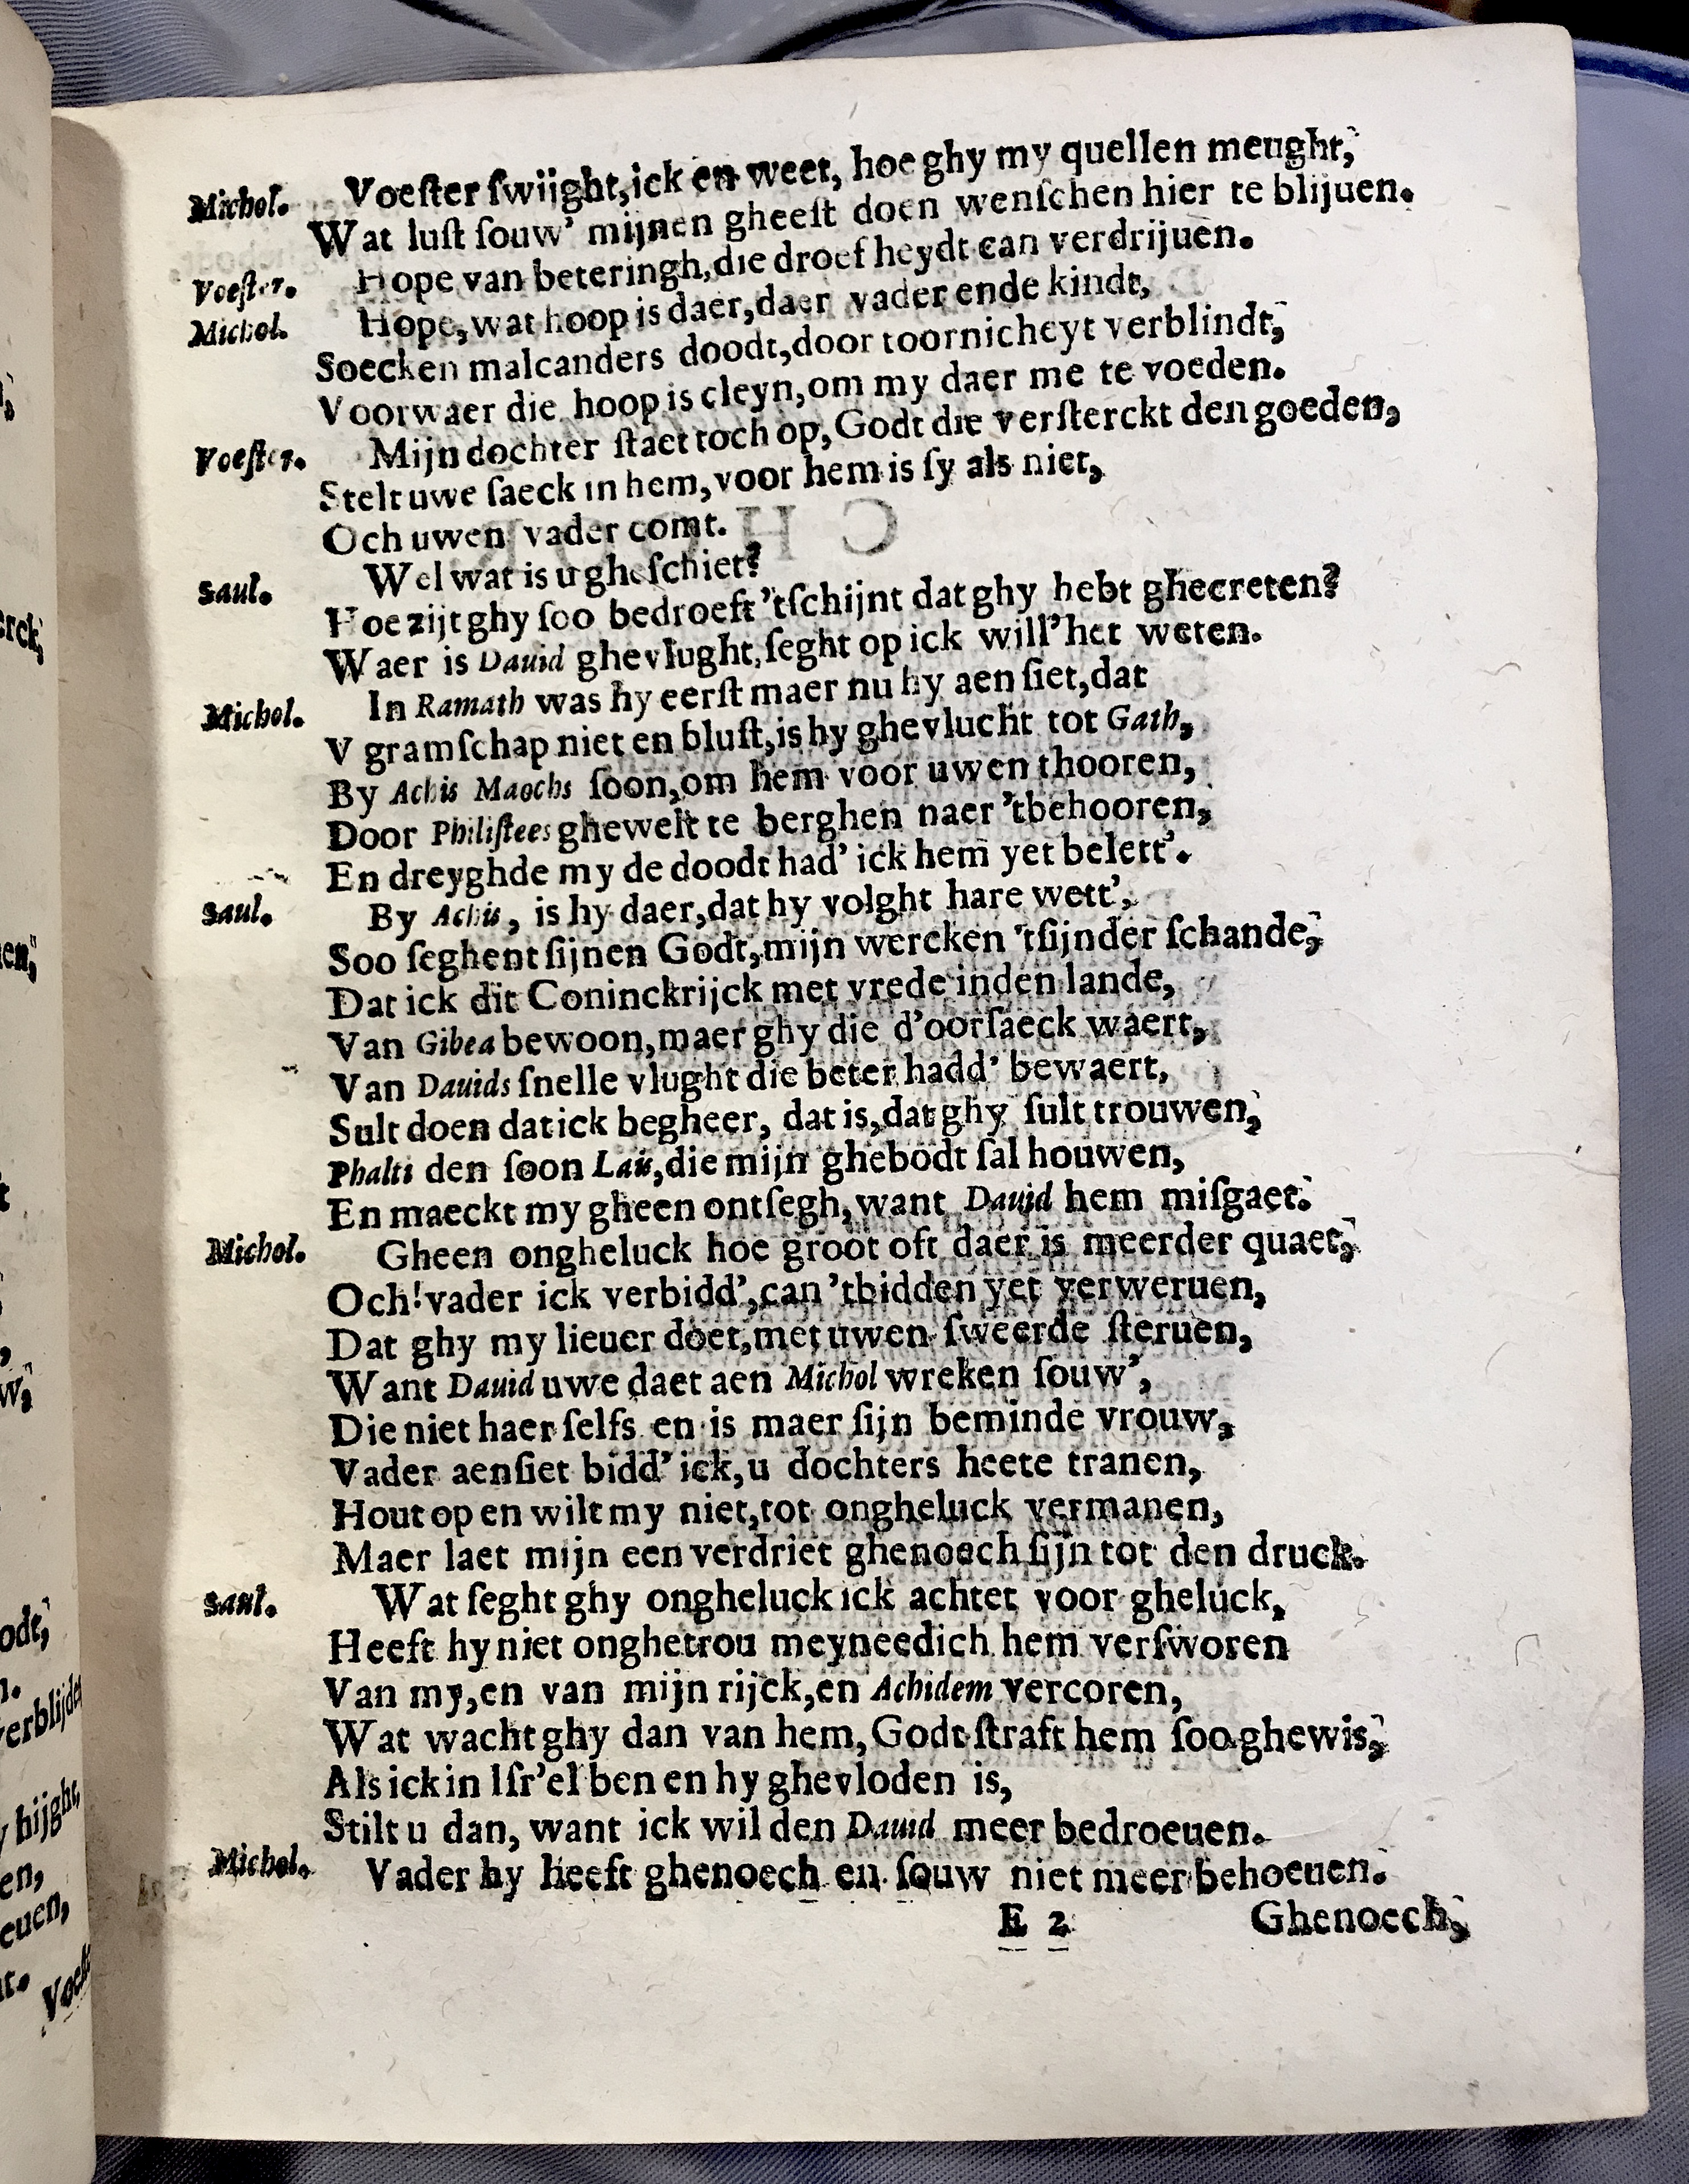 Michol. Voeſter ſwijght, ick en weet, hoe ghy my quellen meught,
Wat luſt ſouw' mijnen gheeſt doen wenſchen hier te blijuen.
Voeſter. Hope van beteringh, die droefheydt can verdrijuen.
Michol. Hope, wat hoop is daer, daer vader ende kindt,
Soecken malcanders doodt, door toornicheyt verblindt,
Voorwaer die hoop is cleyn, om my daer me te voeden.
Voeſter. Mijn dochter ſtaet toch op, Godt die verſterckt den goeden,
Stelt uwe ſaeck in hem, voor hem is ſy als niet,
Och uwen vader comt.
Saul. Wel wat is u gheſchiet?
Hoe zijt ghy ſoo bedroeft 'tſchijnt dat ghy hebt ghecreten?
Waer is Dauid ghevlught, ſeght op ick will' het weten.
Michol. In Ramath was hy eerſt maer nu hy aen ſiet, dat
V gramſchap niet en bluſt, is hy ghevlucht tot Gath,
By Achis Maochs ſoon, om hem voor uwen thooren,
Door Philiſtees ghewelt te berghen naer 'tbehooren,
En dreyghde my de doodt had' ick hem yet belett'.
Saul. By Achis, is hy daer, dat hy volght hare wett',
Soo ſeghent ſijnen Godt, mijn wercken 'tſijnder ſchande,
Dat ick dit Coninckrijck met vrede inden lande,
Van Gibea bewoon, maer ghy die d'oorſaeck waert,
Van Dauids ſnelle vlught die beter hadd' bewaert,
Sult doen dat ick begheer, dat is, dat ghy ſult trouwen,
Phalti den ſoon Lais, die mijn ghebodt ſal houwen,
En maeckt my gheen ontſegh, want Dauid hem miſgaet.
Michol. Gheen ongheluck hoe groot oft daer is meerder quaet,
Och! vader ick verbidd', can 'tbidden yet verweruen,
Dat ghy my lieuer doet, met uwen ſweerde ſteruen,
Want Dauid uwe daet aen Michol wreken ſouw',
Die niet haer ſelfs en is maer ſijn beminde vrouw,
Vader aenſiet bidd' ick, u dochters heete tranen,
Hout op en wilt my niet, tot ongheluck vermanen,
Maer laet mijn een verdriet ghenoech ſijn tot den druck.
Saul. Wat ſeght ghy ongheluck ick achtet voor gheluck,
Heeft hy niet onghetrou meyneedich hem verſworen
Van my, en van mijn rijck, en Achidem vercoren,
Wat wacht ghy dan van hem, Godt ſtraft hem ſoo ghewis,
Als ick in Iſr'el ben en hy ghevloden is,
Stilt u dan, want ick wil den Dauid meer bedroeuen.
Michol. Vader hy heeft ghenoech en ſouw niet meer behoeuen.
E 2 Ghenoech,